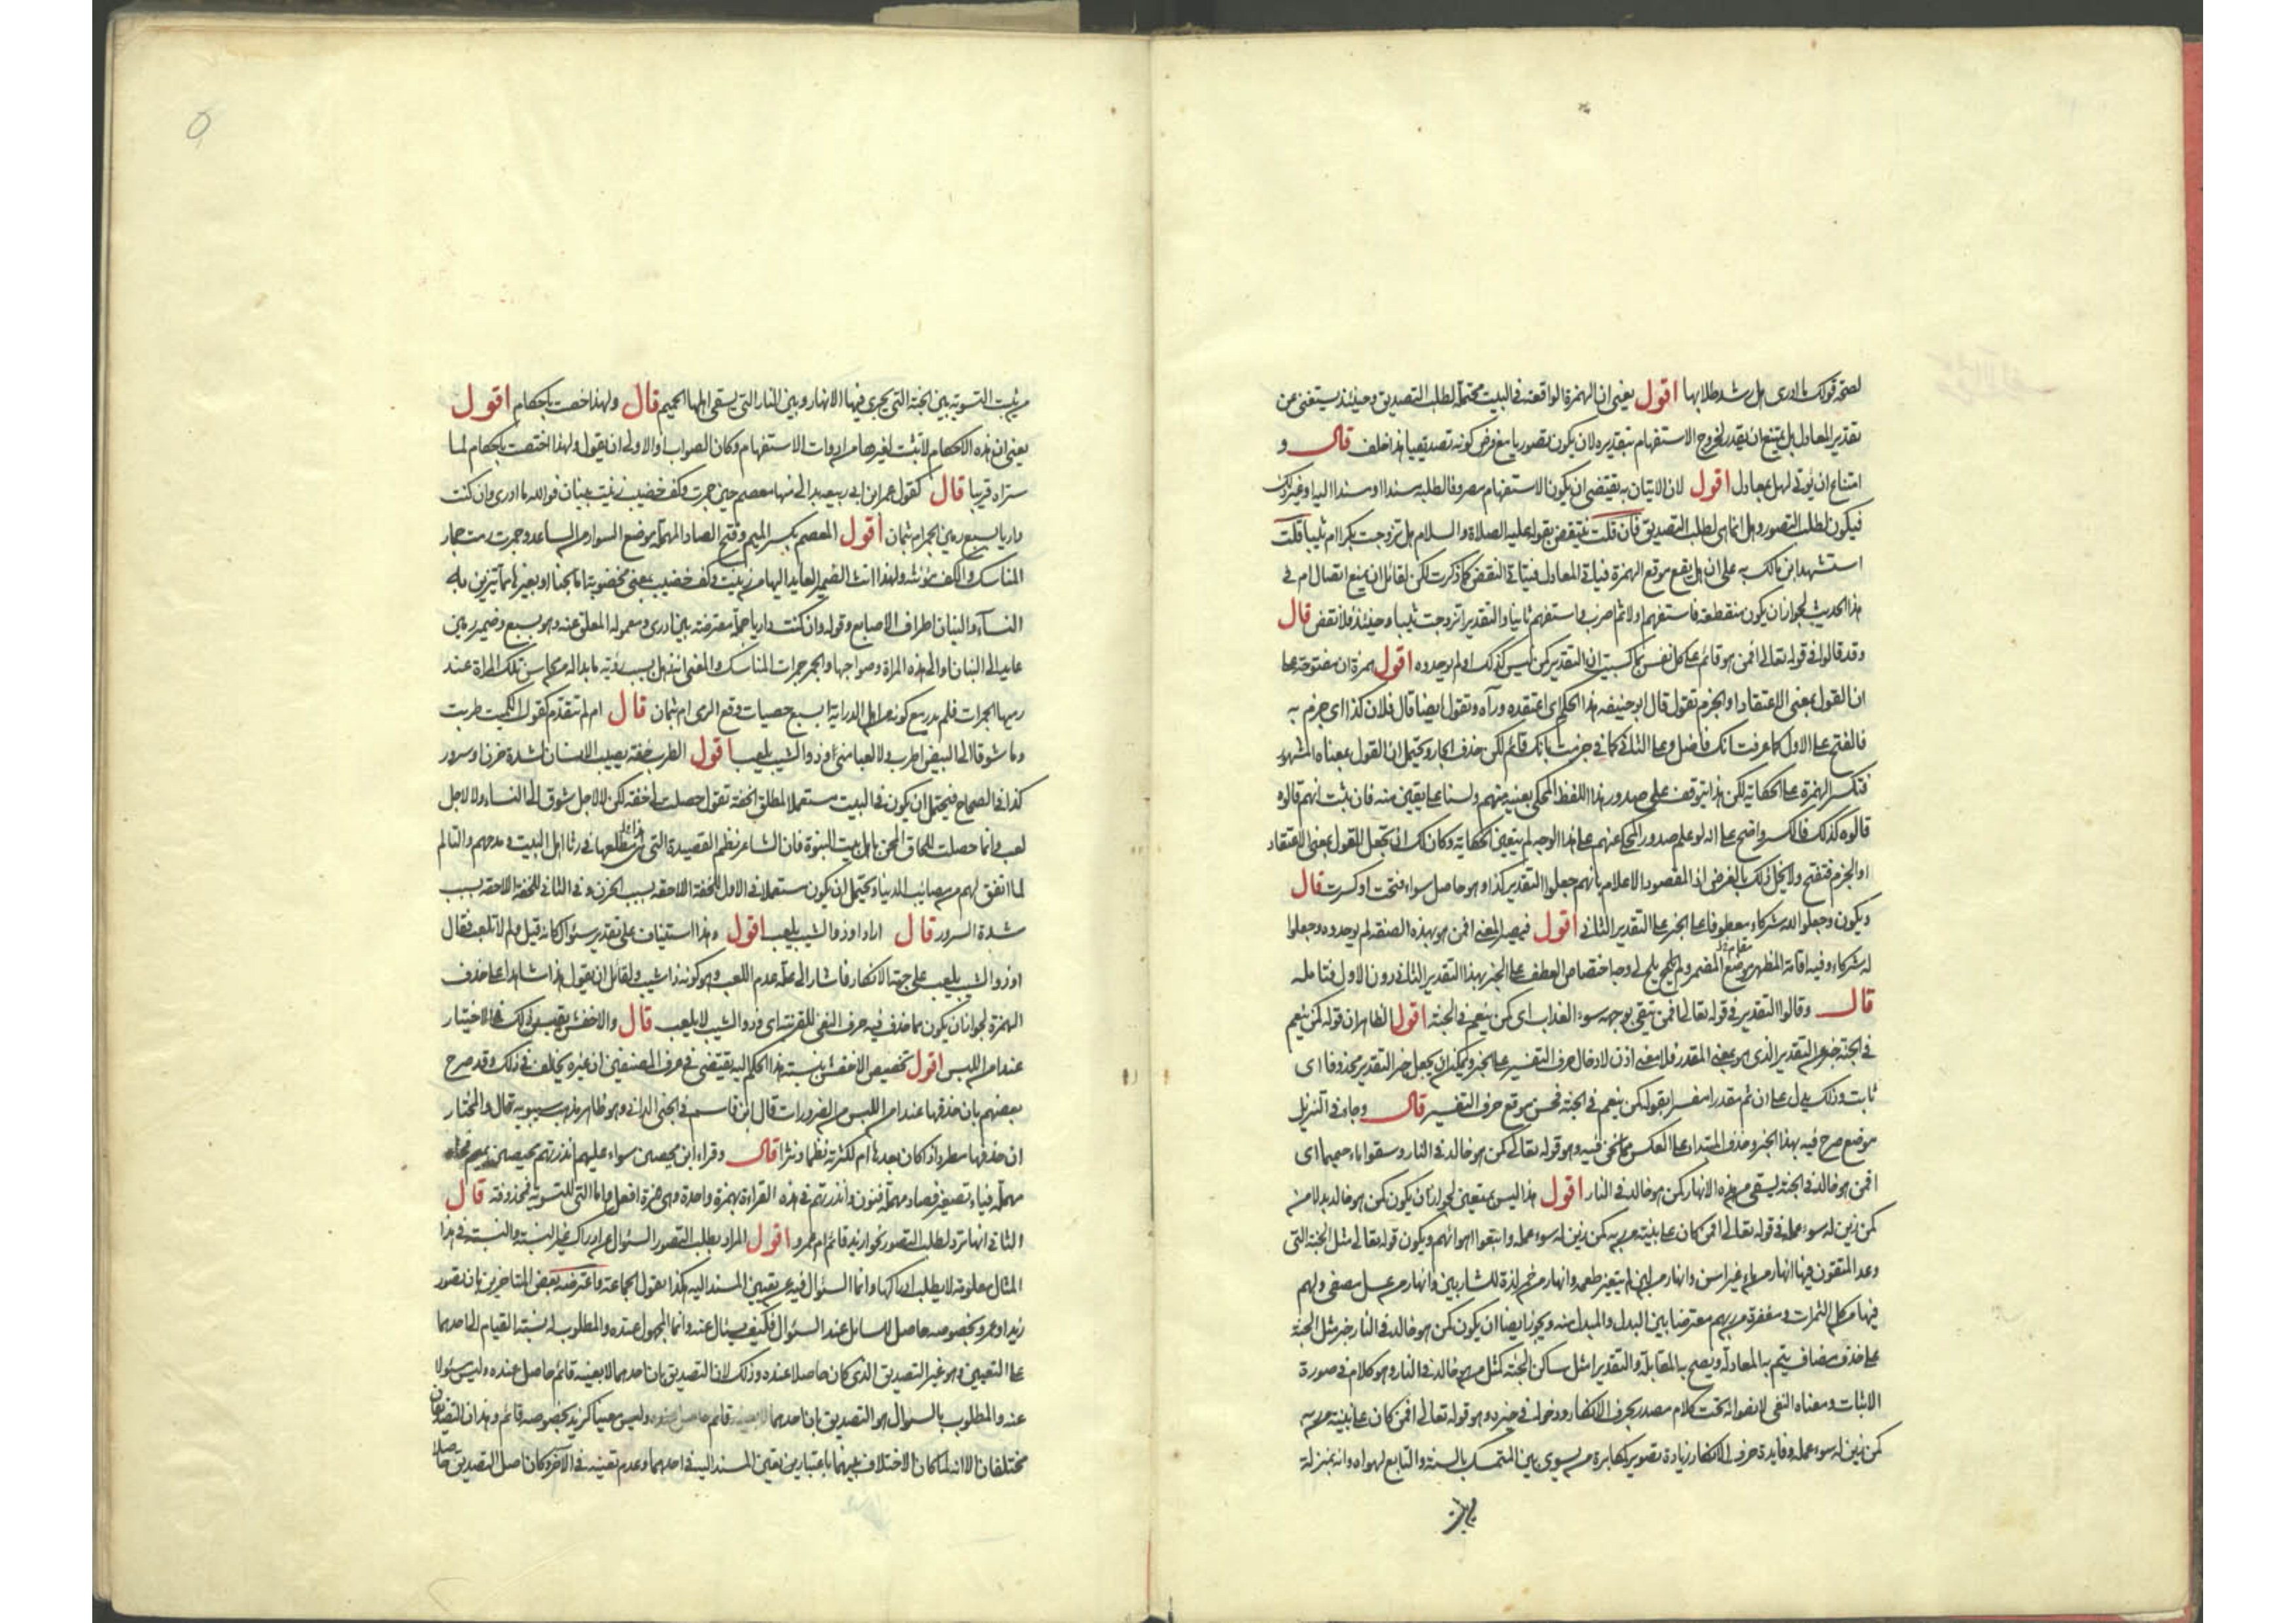 لصحة قولك ما ادرى هل رشد طلابها اقول يعنى ان الهمزة الواقعة فى البيت محتملة لطلب التصديق وحينئذ يستغنى عن
تقدير المعادل بل يمتنع ان يقدر لخروج الاستفهام بتقديره لان يكون تصوريا مع فرض كونه تصديقيا هذا خلف قال و
امتناع ان يؤتى لهل بمعادل اقول لان الاتيان به يقتضى ان يكون الاستفهام مصروفا لطلبه مسندا او مسندا اليه او غير ذلك
فيكون لطلب التصور وهل انما هى لطلب التصديق فان قلت ينتقض بقوله عليه الصلاة والسلام هل تزوجت بكرا ام ثيبا قلت
استشهد ابن مالك به على ان هل يقع موقع الهمزة فيأتى المعادل فيتأتى النقض كما ذكرت لكن لقائل ان يمنع اتصال ام فى
هذا الحديث لجواز ان يكون منقطعة فاستفهم اولا ثم اضرب واستفهم ثانيا والتقدير اتزوجت ثيبا وحينئذ فلا نقض قال
وقد قالوا فى قوله تعالى افمن هو قائم على كل نفس بما كسبت ان التقدير كمن ليس كذلك او لم يوحدوه اقول همزة ان مفتوحة على
ان القول بمعنى الاعتقاد او الجزم تقول قال ابو حنيفه هذا الحكم اى اعتقده ورآه وتقول ايضا قال فلان كذا اى جزم به
فالفتح على الاول كما عرفت انك فاضل وعلى الثانى كما فى جزمت بانك قائم لكن حذف الجار ويحتمل ان القول بمعناه المشهور
فتكسر الهمزة على الحكاية لكن هذا يتوقف على صدور هذا اللفظ المحكى بعينه منهم ولسنا على يقين منه فان ثبت انهم قالوه
قالوه كذلك فالكسر واضح على انه لو علم صدور المحكى عنهم على هذا الوجه لم يتعين الحكاية وكان لك ان تجعل القول بمعنى الاعتقاد
او الجزم فتفتح ولا يخل ذلك بالغرض اذ المقصود الاعلام بانهم جعلوا التقدير كذا وهو حاصل سواء فتحت او كسرت قال
ويكون وجعلوا لله شركاء معطوفا على الخبر على التقدير الثانى اقول فيصير المعنى افمن هو بهذه الصفة لم يوحدوه وجعلوا
له شركاء وفيه اقامة المظهر موضع المضمر ولم يلح لى وجه اختصاص العطف على الخبر بهذا التقدير الثانى دون الاول فتأمله
قال وقالوا التقدير فى قوله تعالى افمن يتقى بوجهه سوء العذاب اى كمن ينعم فى الجنة اقول الظاهر ان قوله كمن ينعم
فى الجنة خبر عن التقدير الذى هو بمعنى المقدر فلا معنى اذن لادخال حرف التفسير على الخبر ويمكن ان يجعل خبر التقدير محذوفا اى
ثابت وذلك يدل على ان ثم مقدرا مفسرا بقوله كمن ينعم فى الجنة فحسن موقع حرف التفسير قال وجاء فى التنزيل
موضع صرح فيه بهذا الخبر وحذف المبتدا على العكس مما نحن فيه وهو قوله تعالى كمن هو خالد فى النار وسقوا ماء حميما اى
افمن هو خالد فى الجنة يسقى من هذه الانهار كمن هو خالد فى النار اقول هذا ليس بمتعين لجواز ان يكون كمن هو خالد بدلا من
كمن زين له سوء عمله فى قوله تعالى افمن كان على بينة من ربه كمن زين له سوء عمله واتبعوا اهوائهم ويكون قوله تعالى مثل الجنة التى
وعد المتقون فيها انهار من ماء غير اسن وانهار من لبن لم يتغير طعمه وانهار من خمر لذة للشاربين وانهار من عسل مصفى ولهم
فيها من كل الثمرات ومغفرة من ربهم معترضا بين البدل والمبدل منه ويجوز ايضا ان يكون كمن هو خالد فى النار خبر مثل الجنة
على حذف مضاف يتم به المعادلة ويصح به المقابلة والتقدير امثل ساكن الجنة كمثل من هو خالد فى النار وهو كلام فى صورة
الاثبات ومعناه النفى لانضوائه تحت كلام مصدر بحرف الانكار ودخوله فى حيزه وهو قوله تعالى افمن كان على بينة من ربه
كمن زين له سوء عمله وفايدة حرف الانكار زيادة تصوير لمكابرة من يسوى بين المتمسك بالبينة والتابع لهواه وانه بمنزلة
من يثبت التسوية بين الجنة التى يجرى فيها الانهار وبين النار التى يسقى اهلها الحميم قال ولهذا خصت باحكام اقول
يعنى ان هذه الاحكام لا تثبت لغيرها من ادوات الاستفهام وكان الصواب والاولى ان يقول ولهذا اختصت باحكام لما
ستراه قريبا قال كقول عمر ابن ابى ربيعه بدا لى منها معصم حين جمرت وكف خضيب زينت ببنان فوالله ما ادرى وان كنت
داريا بسبع رمين الجمر ام بثمان اقول المعصم بكسر الميم وفتح الصاد المهملة موضع السوار من الساعد وجمرت رمت جمار
المناسك والكف مؤنثة ولهذا انث الضمير العايد اليها من زينت وكف خضيب بمعنى مخضوبة اما بالحنا او بغيرها مما يتزين به
النساء والبنان اطراف الاصابع وقوله وان كنت داريا جملة معترضة بين ادرى ومعموله المعلق عنه وهو بسبع وضمير رمين
عايد الى البنان او الى هذه المراة وصواحبها والجمر جمرات المناسك والمعنى انه ذهل بسبب رؤية ما بدا له من محاسن تلك المراة عند
رميها الجمرات فلم يدر مع كونه من اهل الدراية ابسبع حصيات وقع الرمى ام بثمان قال ام لم تتقدم كقول الكميت طربت
وما شوقا الى البيض اطرب ولا لعبا منى وذو الشيب يلعب اقول الطرب خفة يصيب الانسان لشدة حزن او سرور
كذا فى الصحاح فيحتمل ان يكون فى البيت مستعملا لمطلق الخفة تقول حصلت لى خفة لكن لا لاجل شوق الى النساء ولا لاجل
لعب وانما حصلت للحاق الحزن باهل بيت النبوة فان الشاعر نظم القصيدة التى مطلعها فى رثا اهل البيت ومدحهم والتالم
لما اتفق لهم من مصائب الدنيا ويحتمل ان يكون مستعملا فى الاول للخفة الاحقة بسبب الحزن وفى الثانى للخفة الاحقة بسبب
شدة السرور قال اراد او ذو الشيب يلعب اقول وهذا استيناف على تقدير سئوال كانه قيل ولم لا تلعب فقال
اوذو الشيب يلعب على جهة الانكار فاشار الى علة عدم اللعب وهو كونه ذا شيب ولقائل ان يقول هذا شاهدا على حذف
الهمزة لجواز ان يكون مما حذف فيه حرف النفى للقرينة اى وذو الشيب لا يلعب قال والاخفش يقيس ذلك فى الاختيار
عند امن اللبس اقول تخصيص الاخفش بنسبة هذا الحكم اليه يقتضى فى عرف المصنفين ان غيره يخالف فى ذلك وقد صرح
بعضهم بان حذفها عند امن اللبس من الضرورات قال ابن قاسم فى الجنى الدانى وهو ظاهر مذهب سيبويه قال والمختار
ان حذفها مطرد اذا كان بعدها ام لكثرته نظما ونثرا قال وقراءة ابن محيصن سواء عليهم انذرتهم محيصن بميم
مهملة فياء تصغير فصاد مهملة فنون وانذرتهم فى هذه القراءة بهمزة واحدة وهى همزة افعل واما التى للتسوية فمحذوفة قال
الثانى انها ترد لطلب التصور نحو ازيد قائم ام عمرو اقول المراد بطلب التصور السئوال عن ادراك غير النسبة والنسبة فى هذا
المثال معلومة لا يطلب ادراكها وانما السئوال فيه عن تعيين المسند اليه هكذا يقول الجماعة واعترضه بعض المتاخرين بان تصور
زيد او عمرو بخصوصه حاصل للسائل عند السئوال فكيف يسئال عنه وانما المجهول عنده والمطلوب له نسبة القيام الى احدهما
على التعيين وهو غير التصديق الذى كان حاصلا عنده وذلك لان التصديق بان احدهما لا بعينه قائم حاصل عنده وليس مسئولا
عنه والمطلوب بالسوال هو التصديق بان احدهما قائم وليس معينا كزيد بخصوصه قائم وهذان التصديقان
مختلفان الا انه لما كان الاختلاف بينهما باعتبار تعين المسند اليه فى احدهما وعدم تعينه فى الآخر وكان اصل التصديق حاصلا